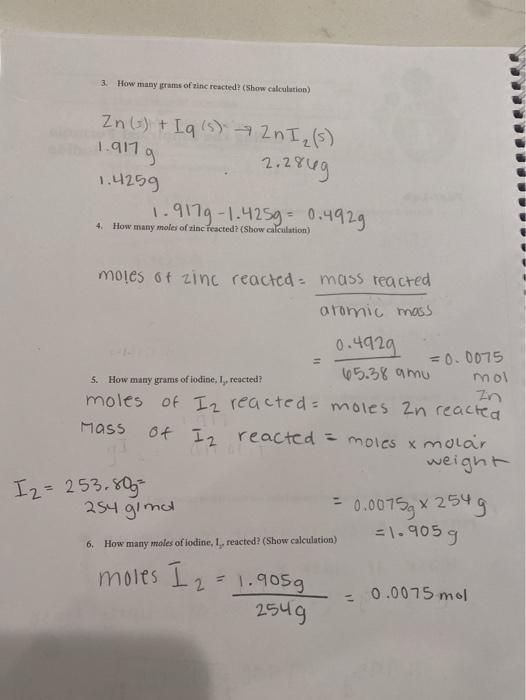 3. How many grams of zinc reacted? (Show calculation)
Zn(s) + Iq(s) → ZnI₂(s)
1.917 g
2.284g
1.425g
1.917g - 1.425g = 0.492g
4. How many moles of zinc reacted? (Show calculation)
moles of zinc reacted = mass reacted
atomic mass
= 0.492g
65.38 amu
= 0.0075
mol
Zn
5. How many grams of iodine, I₂, reacted?
moles of I₂ reacted = moles Zn reacted
Mass of I₂ reacted = moles x molar
weight
I₂ = 253.80g=
254 g/mol
= 0.0075g x 254 g
= 1.905 g
6. How many moles of iodine, I₂, reacted? (Show calculation)
moles I₂ = 1.905g
254g
= 0.0075 mol